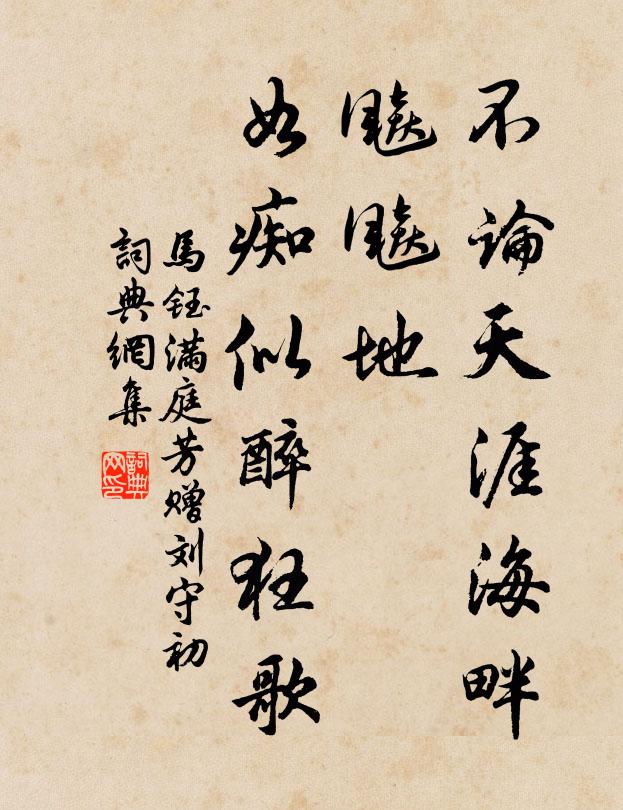 不論天涯海畔
飈飈地
如痴似醉狂歌
馬鈺满庭芳赠刘守初
詞典網集
詞典网印